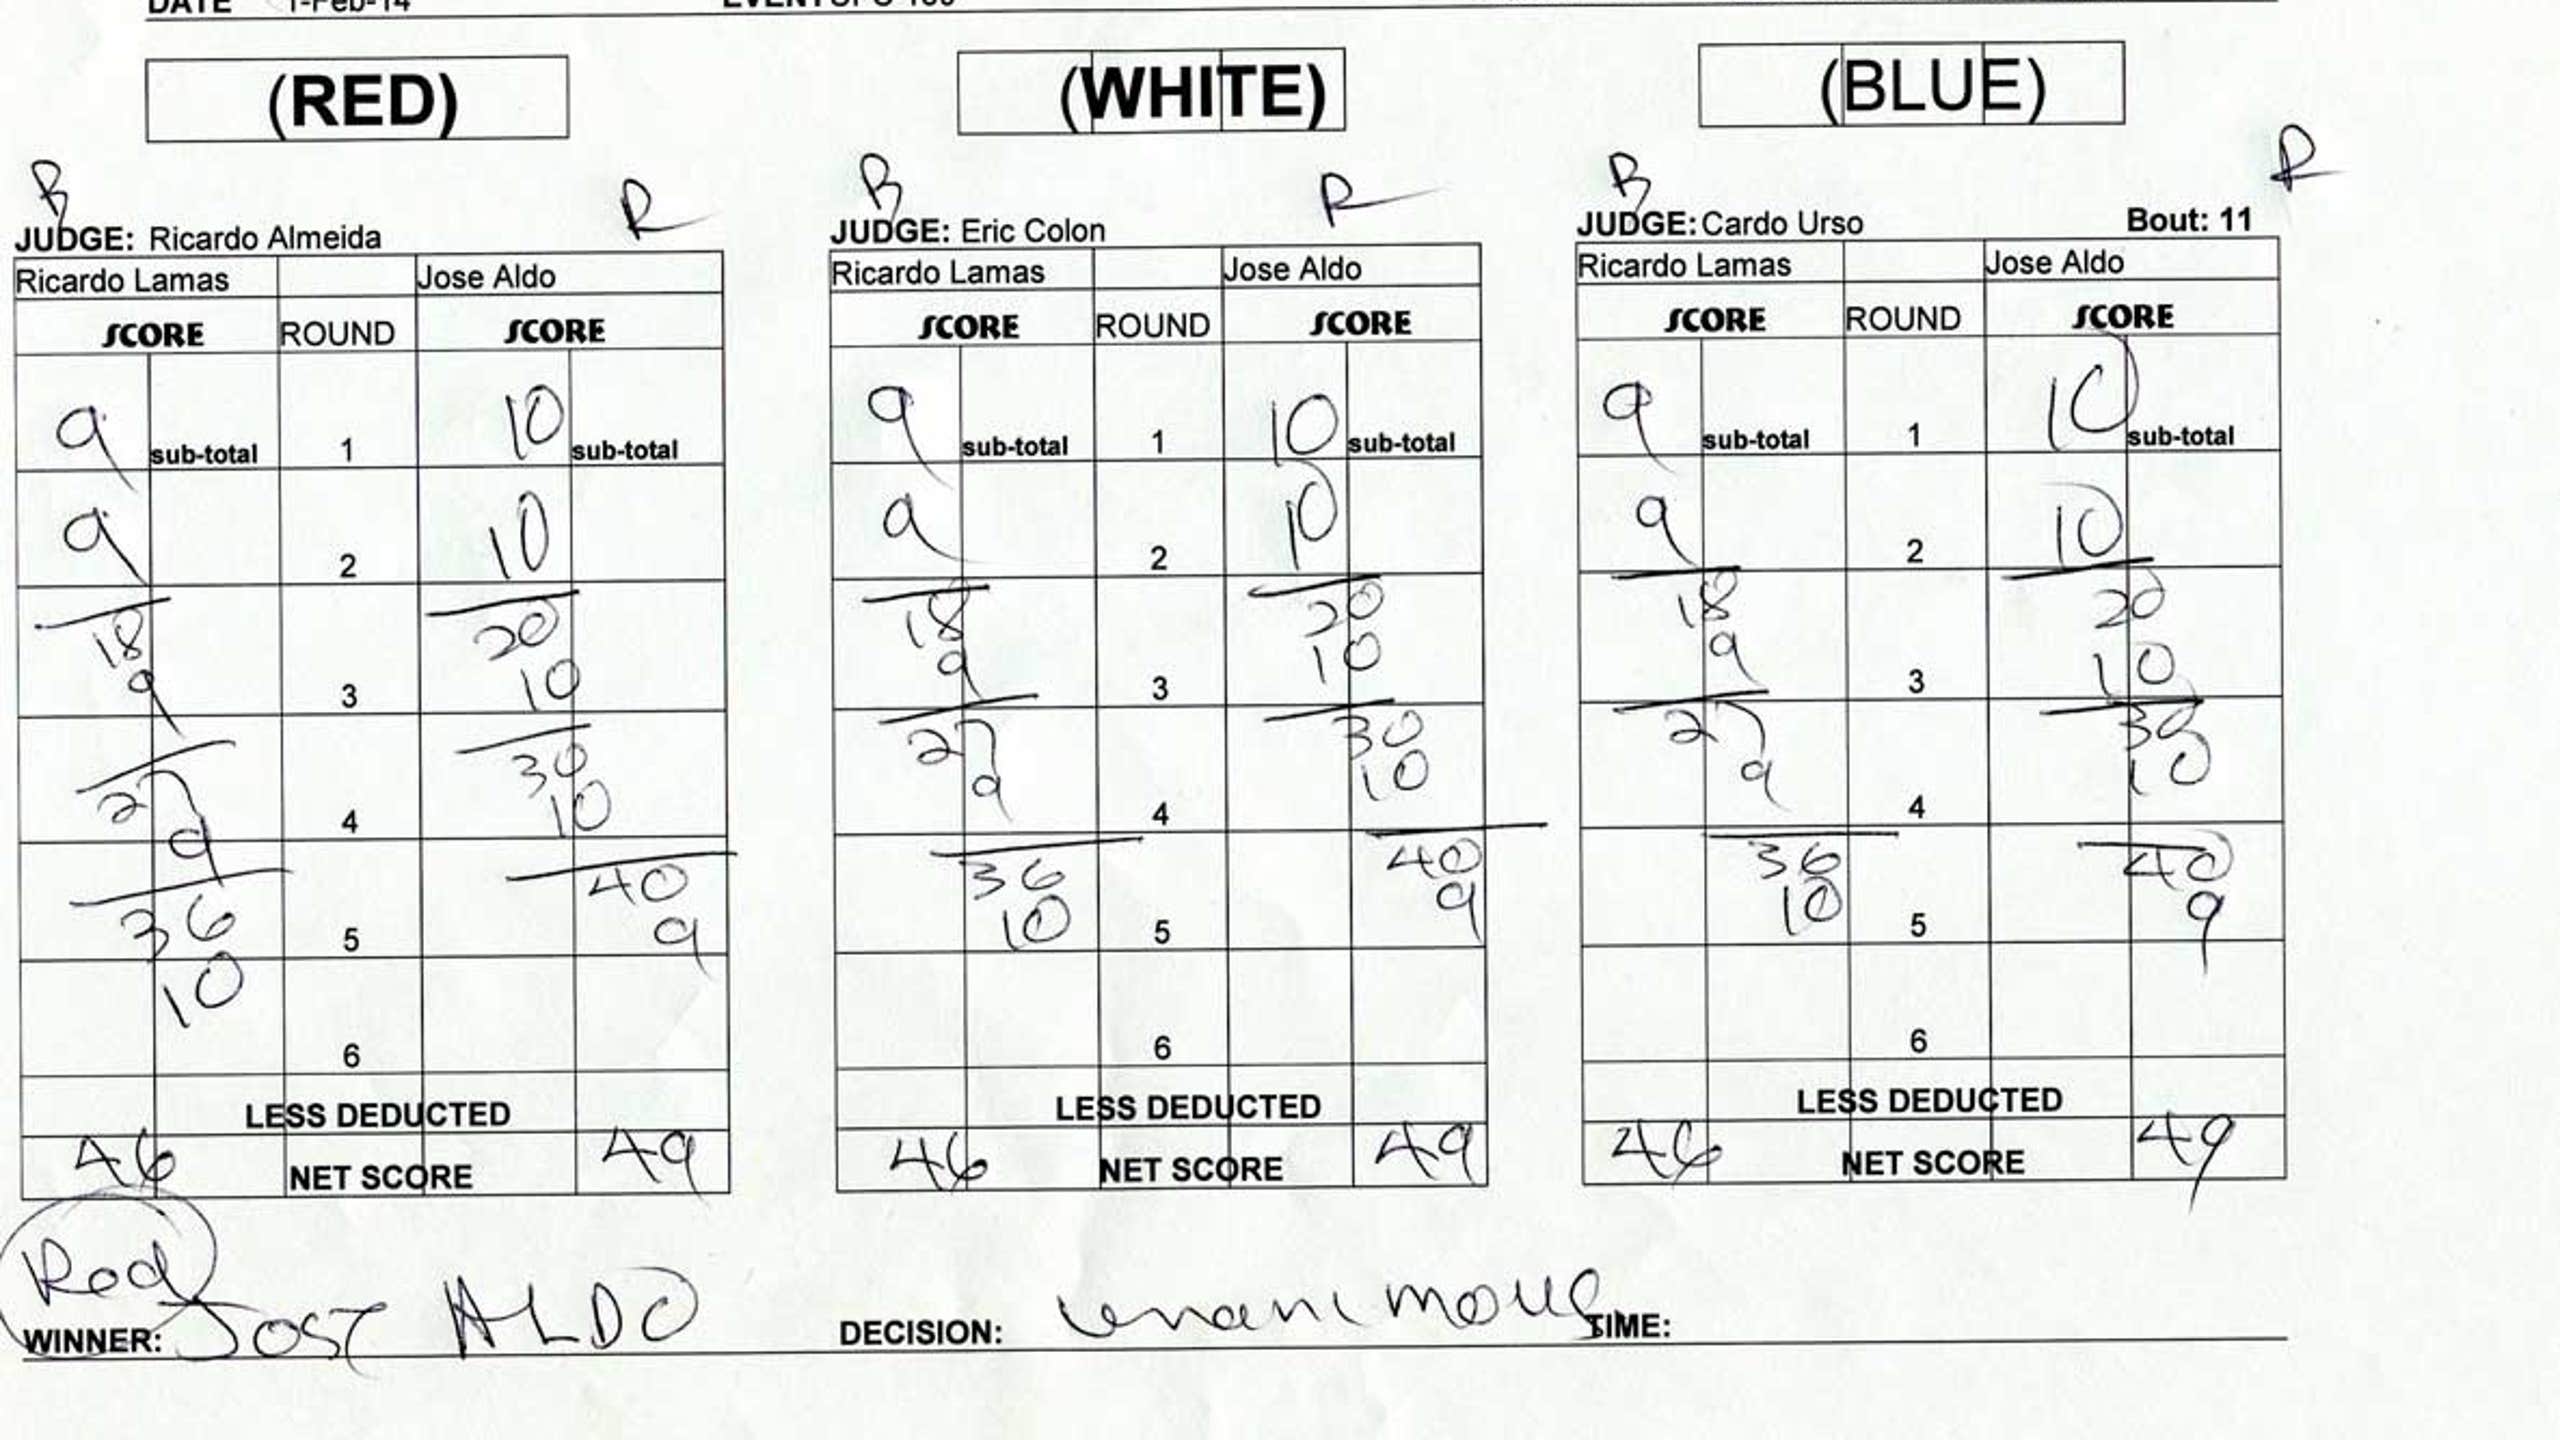 DATE 1-Feb-14 EVENT UFC 169
(RED) (WHITE) (BLUE)
B R B R B R
JUDGE: Ricardo Almeida JUDGE: Eric Colon JUDGE: Cardo Urso Bout: 11
Ricardo Lamas Jose Aldo Ricardo Lamas Jose Aldo Ricardo Lamas Jose Aldo
SCORE ROUND SCORE SCORE ROUND SCORE SCORE ROUND SCORE
9 sub-total 1 10 sub-total 9 sub-total 1 10 sub-total 9 sub-total 1 10 sub-total
9 2 10 9 2 10 9 2 10
18 20 18 20 18 20
9 3 10 9 3 10 9 3 10
27 30 27 30 27 30
9 4 10 9 4 10 9 4 10
36 40 36 40 36 40
10 5 9 10 5 9 10 5 9
6 6 6
LESS DEDUCTED LESS DEDUCTED LESS DEDUCTED
46 NET SCORE 49 46 NET SCORE 49 46 NET SCORE 49
Red
WINNER: JOSE ALDO DECISION: unanimous TIME: